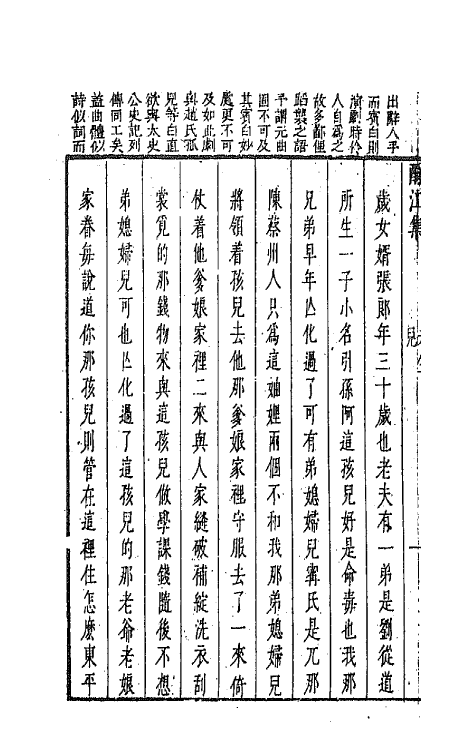 出辭人手
而賓白則
演劇時伶
人自為之
故多鄙俚
蹈襲之語
予謂元曲
固不可及
其賓白妙
處更不可
及如此劇
與趙氏孤
兒等白直
欲與太史
公史記列
傳同工矣
蓋曲體似
詩似詞而
酹江集
兒
歲女婿張郎年三十歲也老夫有一弟是劉從道
所生一子小名引孫阿這孩兒好是命毒也我那
兄弟早年亾化過了可有弟媳婦兒甯氏是兀那
陳蔡州人只為這妯娌兩個不和我那弟媳婦兒
將領着孩兒去他那爹娘家裡守服去了一來倚
仗着他爹娘家裡二來與人家縫破補綻洗衣刮
裳覓的那錢物來與這孩兒做學課錢隨後不想
弟媳婦兒可也亾化過了這孩兒的那老爺老娘
家眷每說道你那孩兒則管在這裡住怎麽東平